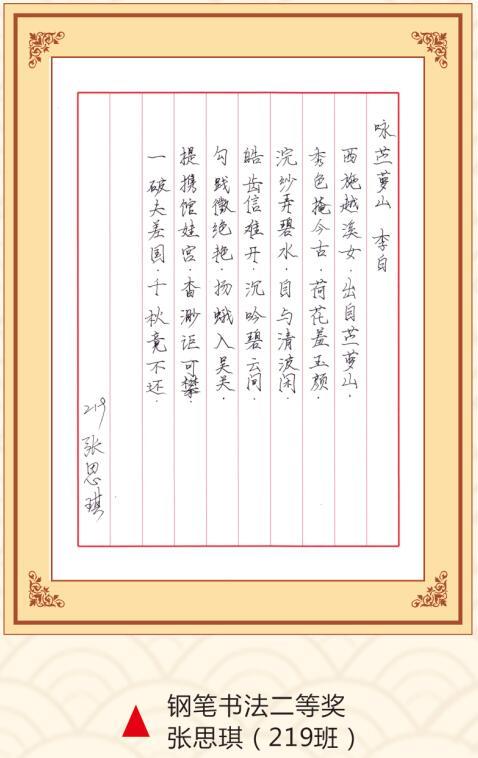 咏苎萝山 李白
西施越溪女·出自苎萝山·
秀色掩今古·荷花羞玉颜·
浣纱弄碧水·自与清波闲·
皓齿信难开·沉吟碧云间·
勾践徵绝艳·扬蛾入吴关·
提携馆娃宫·杳渺讵可攀·
一破夫差国·千秋竟不还·
219 张思琪
钢笔书法二等奖
张思琪（219班）